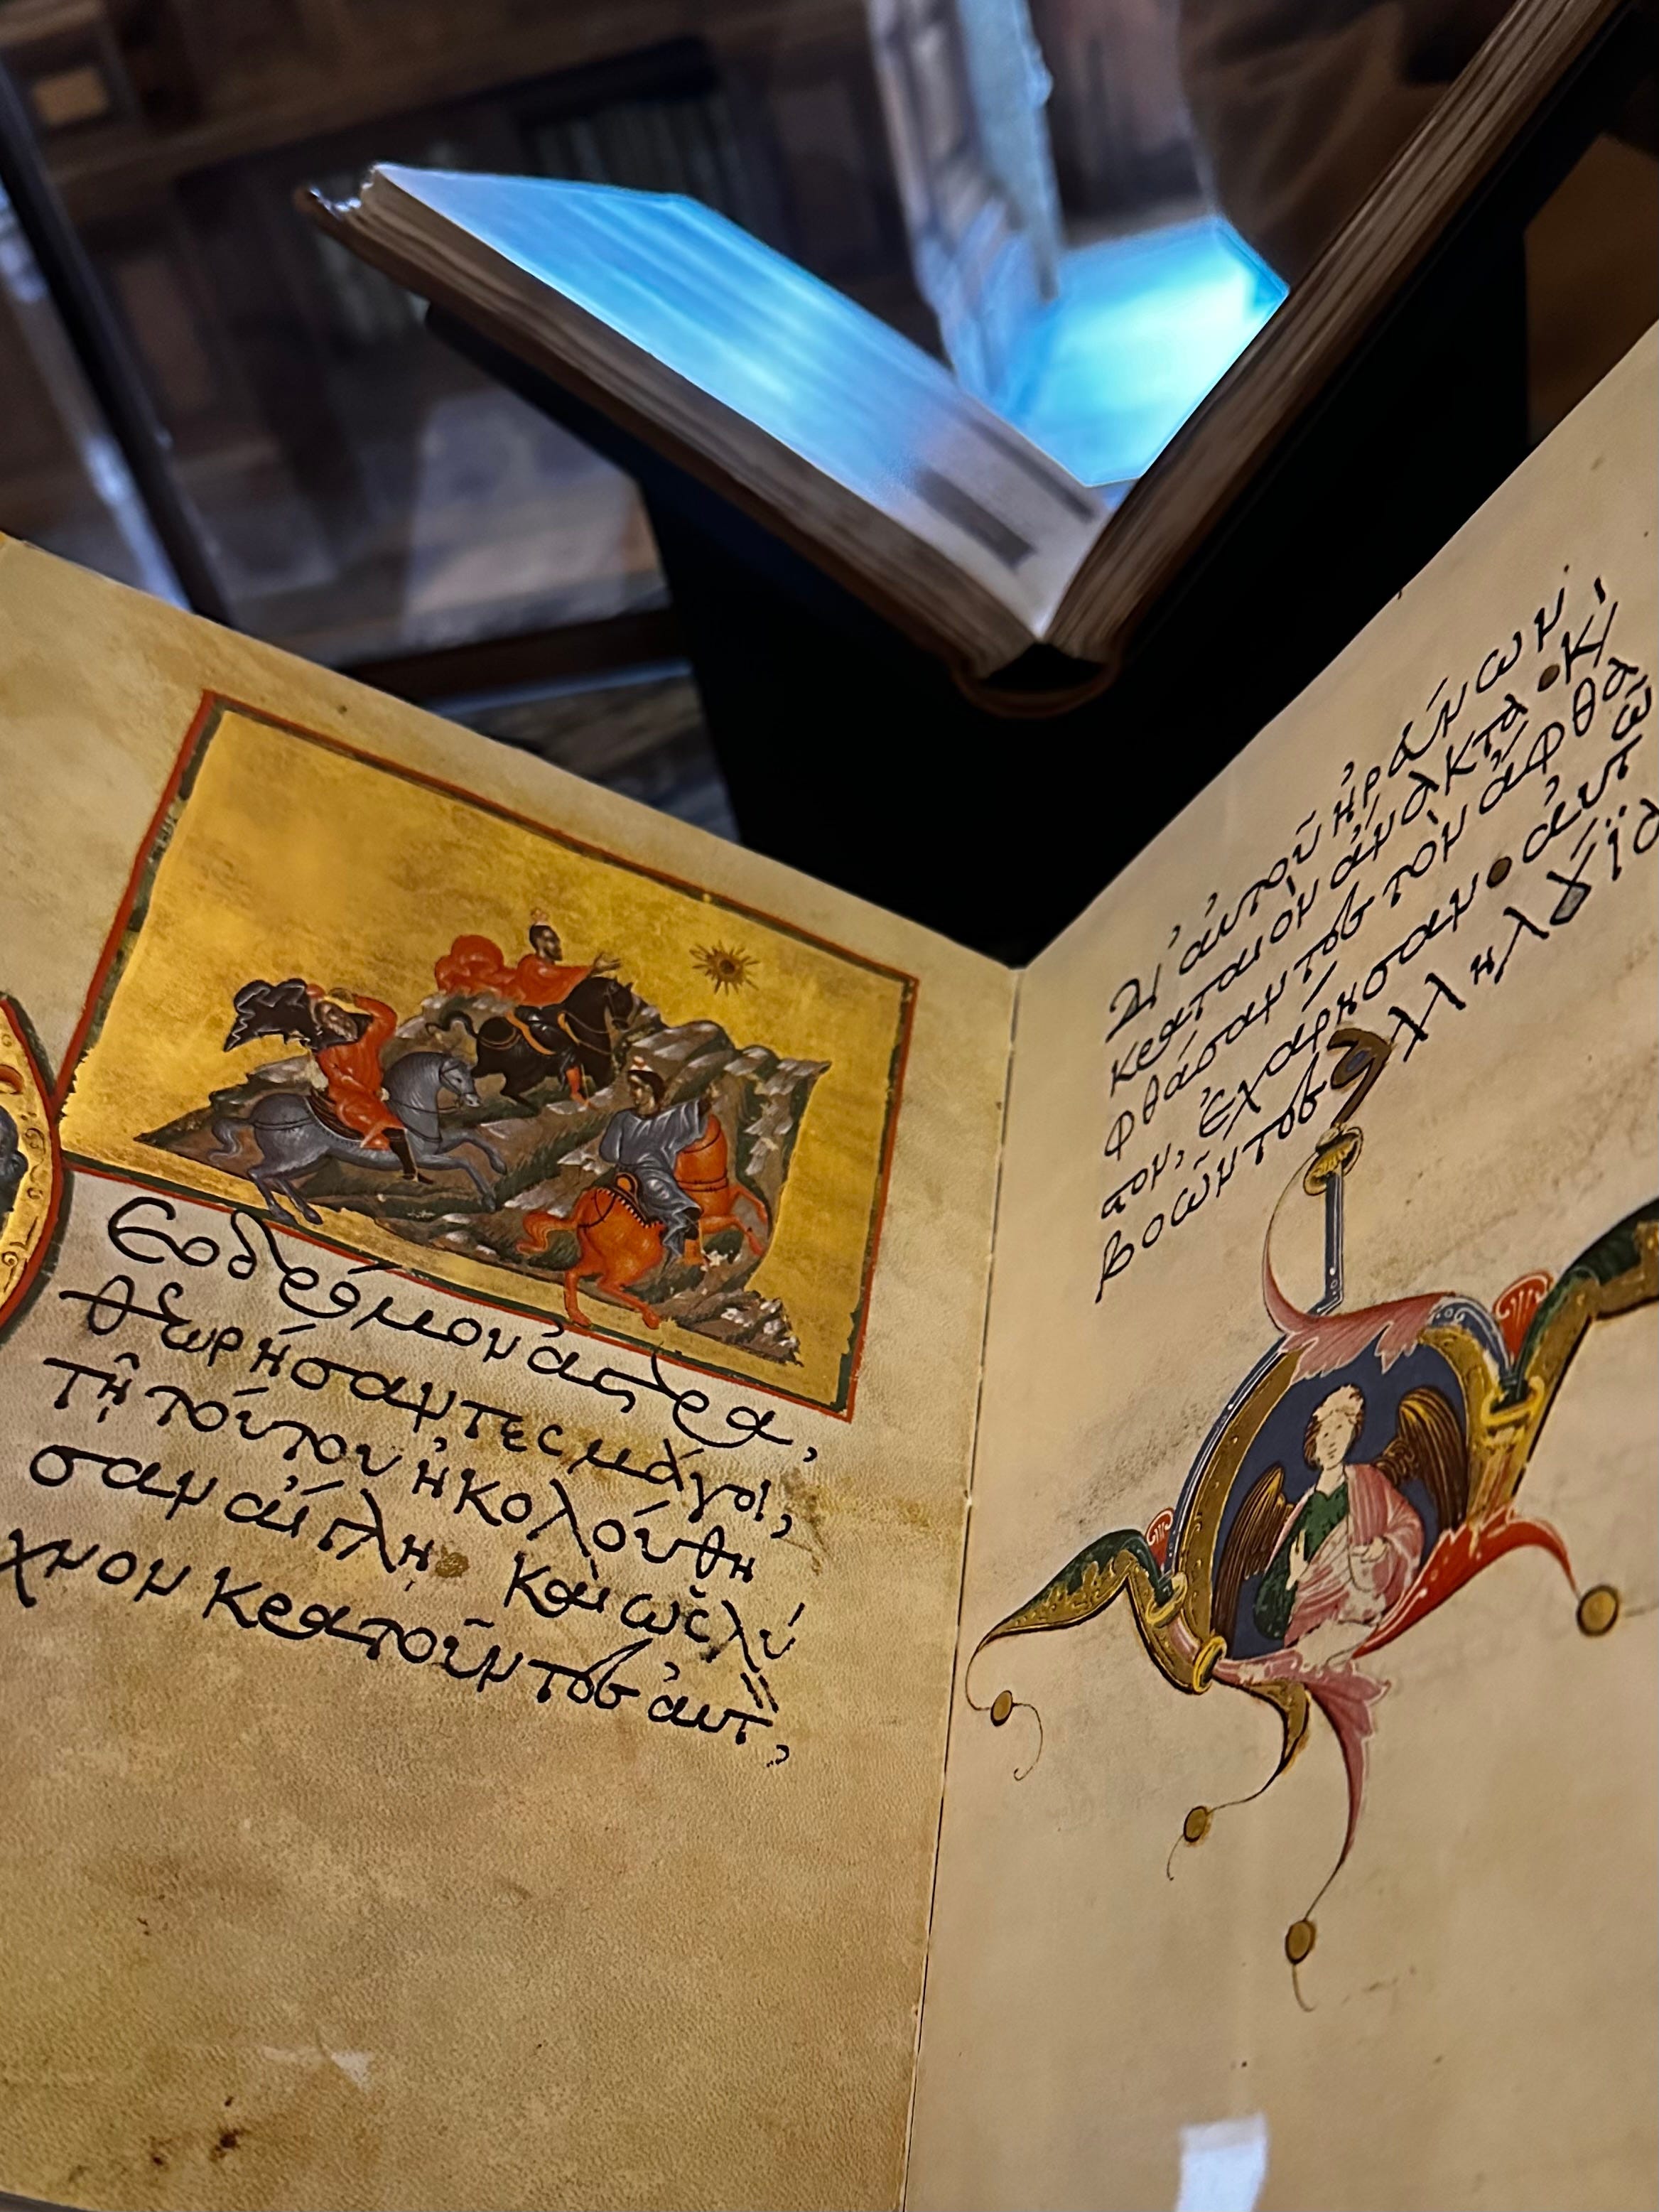 Θεοδρόμον ἀστέρα,
θεωρήσαντες μάγοι,
τῇ τούτου ἠκολούθη
σαν αἴγλῃ· Καὶ ὡς λύ
χνον κρατοῦντες αὐτ,
δι' αὐτοῦ ἠρεύνων
κραταιὸν ἄνακτα· κ,
φθάσαντες τὸν ἄφθα
στον, ἐχάρησαν· αὐτῶ
βοῶντες ἀλληλούϊα